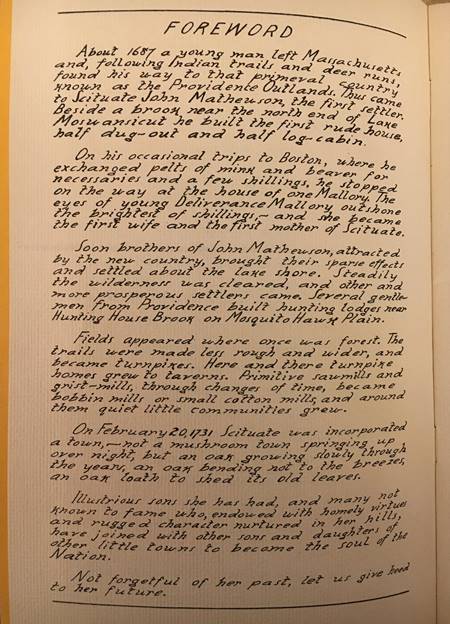 FOREWORD
About 1687 a young man left Massachusetts
and, following Indian trails and deer runs,
found his way to that primeval country
known as the Providence Outlands. Thus came
to Scituate John Mathewson, the first settler.
Beside a brook near the north end of Lake
Moswansicut he built the first rude house,
half dug-out and half log-cabin.
On his occasional trips to Boston, where he
exchanged pelts of mink and beaver for
necessaries and a few shillings, he stopped
on the way at the house of one Mallory. The
eyes of young Deliverance Mallory outshone
the brightest of shillings,- and she became
the first wife and the first mother of Scituate.
Soon brothers of John Mathewson, attracted
by the new country, brought their sparse effects
and settled about the lake shore. Steadily
the wilderness was cleared, and other and
more prosperous settlers came. Several gentle-
men from Providence built hunting lodges near
Hunting House Brook on Mosquito Hawk Plain.
Fields appeared where once was forest. The
trails were made less rough and wider, and
became turnpikes. Here and there turnpike
homes grew to taverns. Primitive sawmills and
grist-mills, through changes of time, became
bobbin mills or small cotton mills, and around
them quiet little communities grew.
On February 20, 1731 Scituate was incorporated
a town,- not a mushroom town springing up
over night, but an oak growing slowly through
the years, an oak bending not to the breezes,
an oak loath to shed its old leaves.
Illustrious sons she has had, and many not
known to fame who, endowed with homely virtues
and rugged character nurtured in her hills,
have joined with other sons and daughters of
other little towns to become the soul of the
Nation.
Not forgetful of her past, let us give heed
to her future.